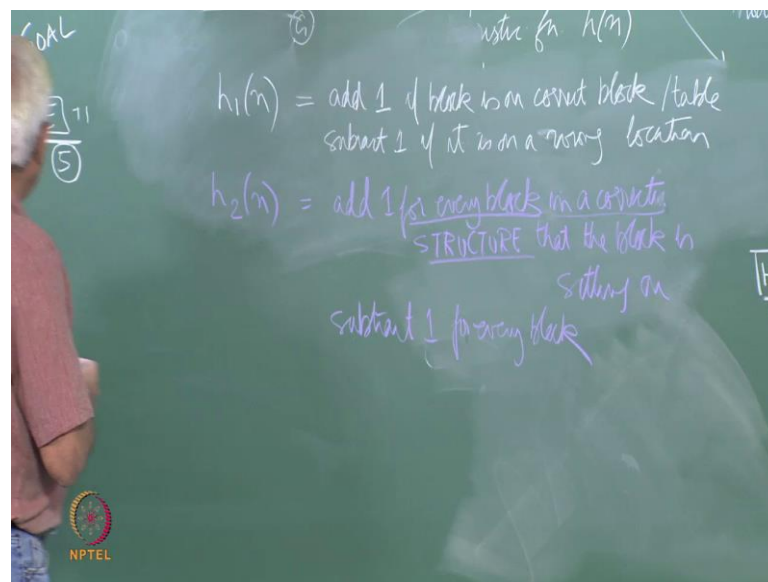 GOAL
h(n)
h₁(n) = add 1 if block is on correct block / table
subtract 1 if it is on a wrong location
5
h₂(n) = add 1 for every block in a correct
STRUCTURE that the block is
sitting on
subtract 1 for every block
NPTEL